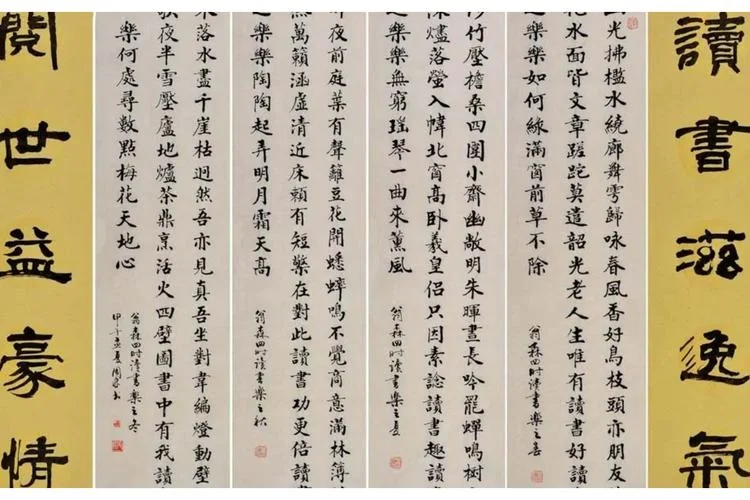 讀書滋逸氣
光拂檻水繞廊舞雩歸咏春風香好鳥枝頭亦朋友
花水面皆文章蹉跎莫遣韶光老人生唯有讀書好讀
之樂樂如何綠滿窗前草不除
翁森四時讀書樂之春
竹壓檐桑四圍小齋幽敞明朱暉晝長吟罷蟬鳴樹
深燼落螢入幃北窗高卧羲皇侶只因素諗讀書趣讀
之樂樂無窮瑤琴一曲來薰風
翁森四時讀書樂之夏
昨夜前庭葉有聲籬豆花開蟋蟀鳴不覺商意滿林薄
然萬籟涵虛清近床賴有短檠在對此讀書功更倍讀
之樂樂陶陶起弄明月霜天高
翁森四時讀書樂之秋
木落水盡千崖枯迥然吾亦見真吾坐對韋編燈動壁
歌夜半雪壓廬地爐茶鼎烹活火四壁圖書中有我讀
樂何處尋數點梅花天地心
翁森四時讀書樂之冬
甲午孟夏周
閱世益豪情